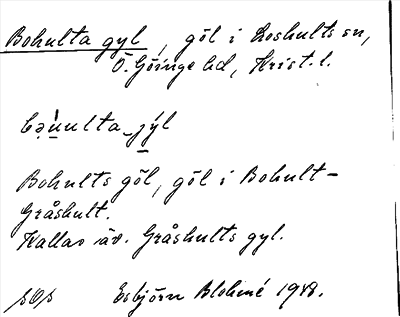 Bohulta gyl, göl i Loshults sn,
Ö. Göinge hd, Krist. l.
Bohults göl, göl i Bohult-
Gråshult.
Kallas äv. Gråshults gyl.
Esbjörn Blohmé 1948.